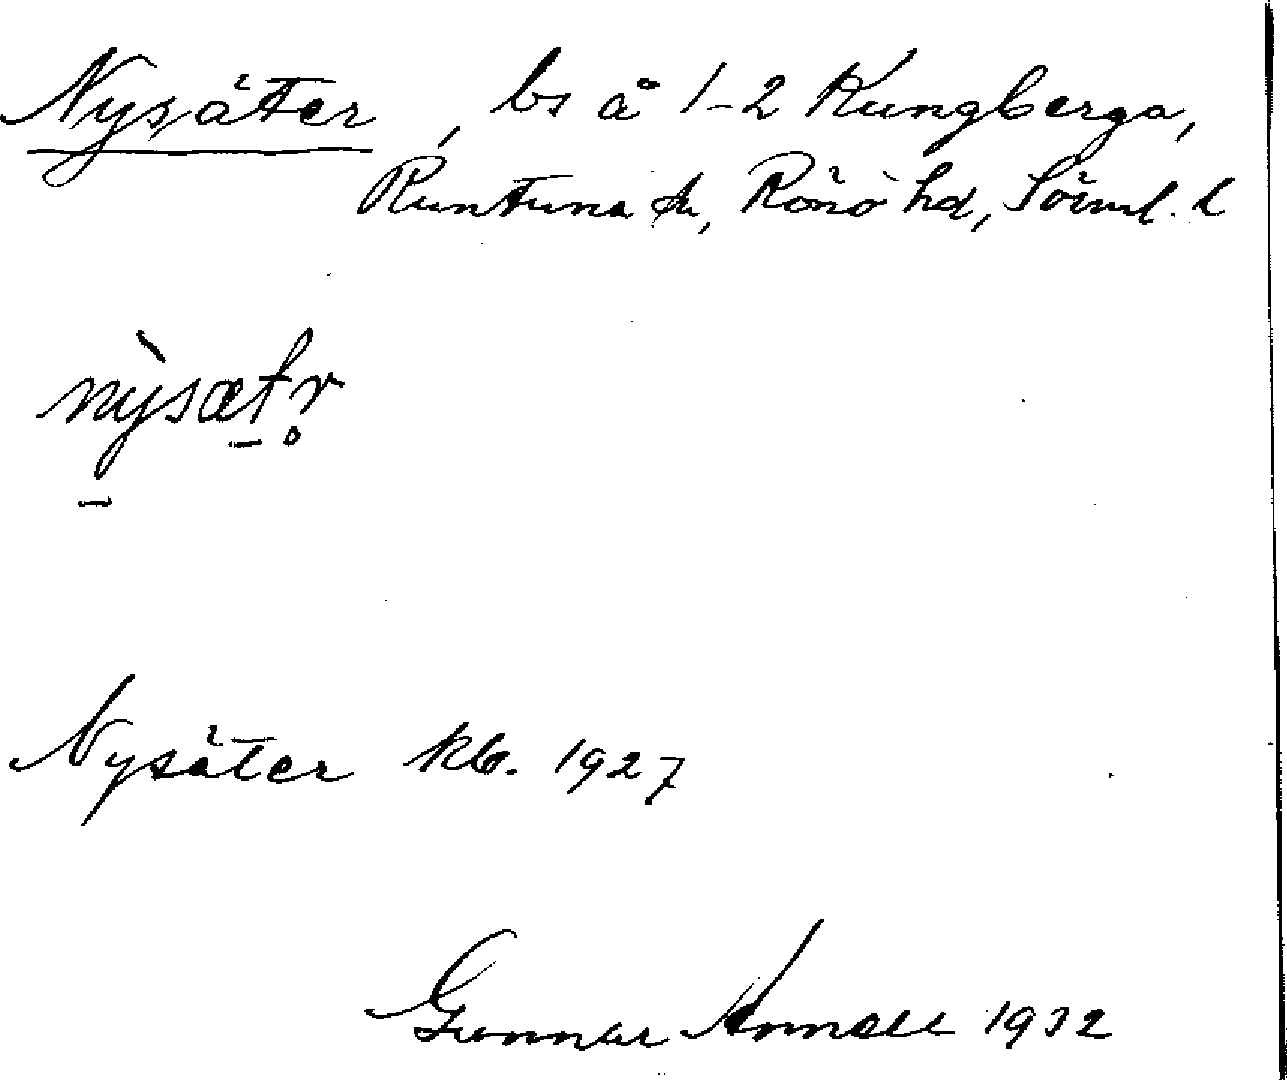 Nysäter, bs å 1-2 Kungberga,
Runtuna sn, Rönö hd, Sörml. l
nỳsætr̥
Nysäter kb. 1927
Gunnar Annell 1932